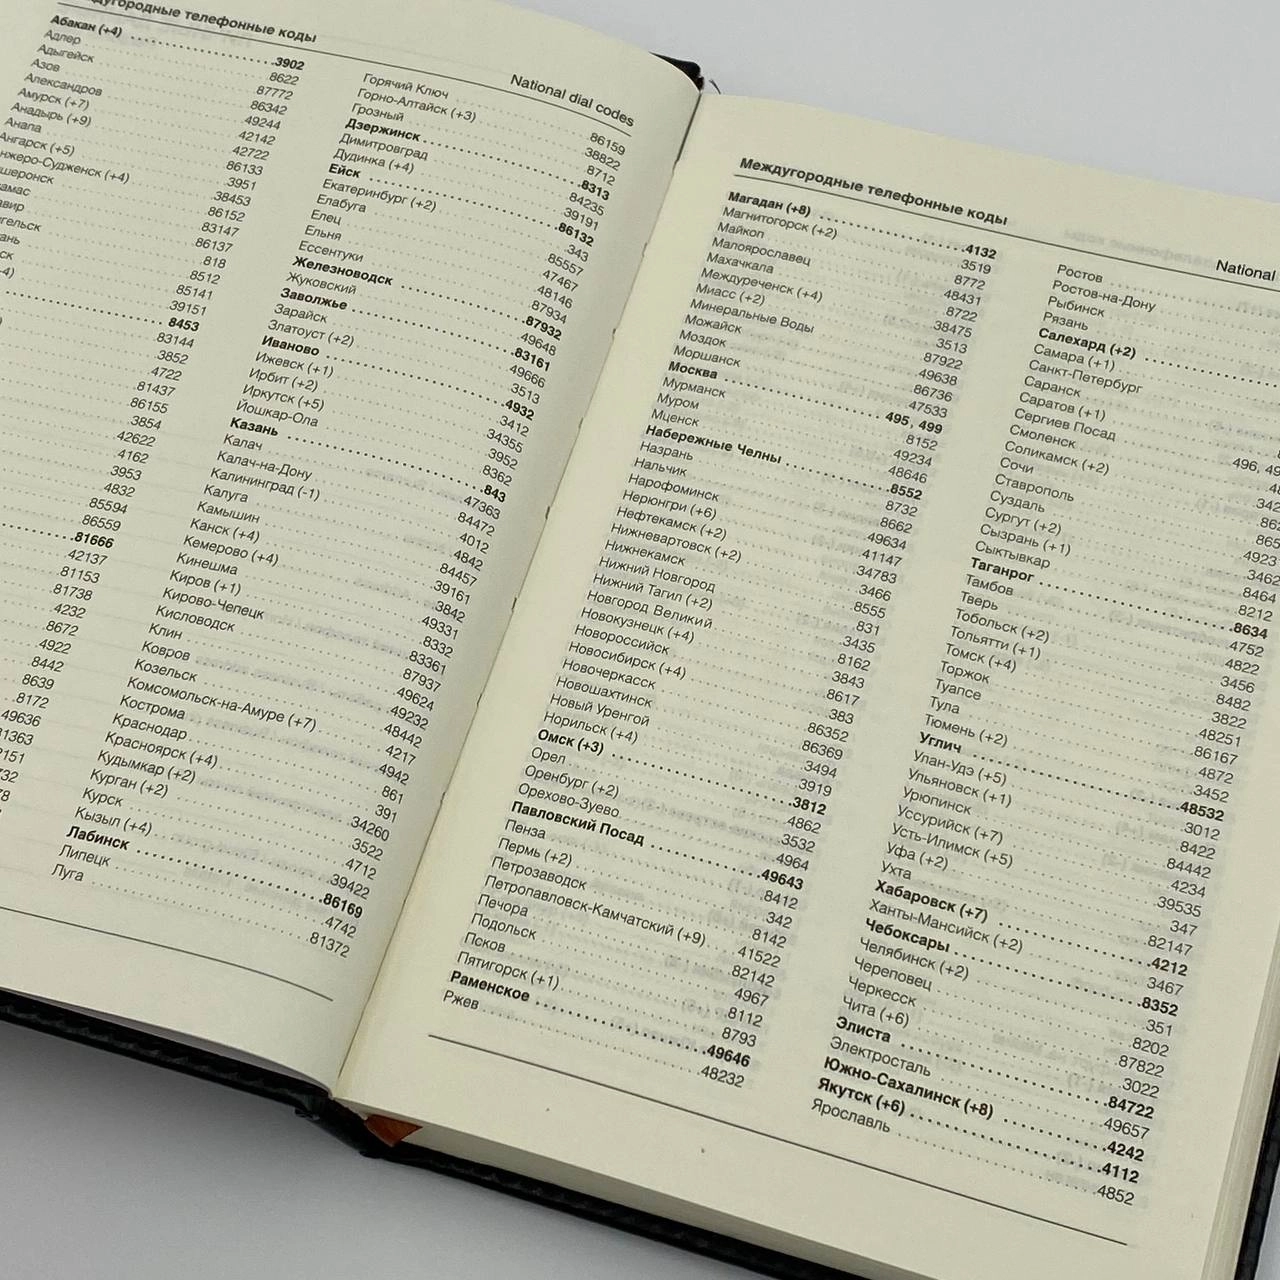 Междугородные телефонные коды
National dial codes
Абакан (+4) 3902
Адлер 8622
Адыгейск 87772
Азов 86342
Александров 49244
Амурск (+7) 42142
Анадырь (+9) 42722
Анапа 86133
Ангарск (+5) 3951
нжеро-Судженск (+4) 38453
шеронск 86152
амас 83147
авир 86137
гельск 818
ань 8512
85141
ск 39151
8453
83144
3852
4722
81437
86155
3854
42622
4162
3953
4832
85594
86559
81666
42137
81153
81738
4232
8672
4922
8442
8639
8172
49636
Горячий Ключ 86159
Горно-Алтайск (+3) 38822
Грозный 8712
Дзержинск 8313
Димитровград 84235
Дудинка (+4) 39191
Ейск 86132
Екатеринбург (+2) 343
Елабуга 85557
Елец 47467
Ельня 48146
Ессентуки 87934
Железноводск 87932
Жуковский 49648
Заволжье 83161
Зарайск 49666
Златоуст (+2) 3513
Иваново 4932
Ижевск (+1) 3412
Ирбит (+2) 34355
Иркутск (+5) 3952
Йошкар-Ола 8362
Казань 843
Калач 47363
Калач-на-Дону 84472
Калининград (-1) 4012
Калуга 4842
Камышин 84457
Канск (+4) 39161
Кемерово (+4) 3842
Кинешма 49331
Киров (+1) 8332
Кирово-Чепецк 83361
Кисловодск 87937
Клин 49624
Ковров 49232
Козельск 48442
Комсомольск-на-Амуре (+7) 4217
Кострома 4942
Краснодар 861
Красноярск (+4) 391
Кудымкар (+2) 34260
Курган (+2) 3522
Курск 4712
Кызыл (+4) 39422
Лабинск 86169
Липецк 4742
Луга 81372
Междугородные телефонные коды
National
Магадан (+8) 4132
Магнитогорск (+2) 3519
Майкоп 8772
Малоярославец 48431
Махачкала 8722
Междуреченск (+4) 38475
Миасс (+2) 3513
Минеральные Воды 87922
Можайск 49638
Моздок 86736
Моршанск 47533
Москва 495, 499
Мурманск 8152
Муром 49234
Мценск 48646
Набережные Челны 8552
Назрань 8732
Нальчик 8662
Нарофоминск 49634
Нерюнгри (+6) 41147
Нефтекамск (+2) 34783
Нижневартовск (+2) 3466
Нижнекамск 8555
Нижний Новгород 831
Нижний Тагил (+2) 3435
Новгород Великий 8162
Новокузнецк (+4) 3843
Новороссийск 8617
Новосибирск (+4) 383
Новочеркасск 86352
Новошахтинск 86369
Новый Уренгой 3494
Норильск (+4) 3919
Омск (+3) 3812
Орел 4862
Оренбург (+2) 3532
Орехово-Зуево 4964
Павловский Посад 49643
Пенза 8412
Пермь (+2) 342
Петрозаводск 8142
Петропавловск-Камчатский (+9) 41522
Печора 82142
Подольск 4967
Псков 8112
Пятигорск (+1) 8793
Раменское 49646
Ржев 48232
Ростов
Ростов-на-Дону
Рыбинск
Рязань
Салехард (+2)
Самара (+1)
Санкт-Петербург
Саранск
Саратов (+1)
Сергиев Посад 496, 49
Смоленск
Соликамск (+2) 342
Сочи 862
Ставрополь 865
Суздаль 4923
Сургут (+2) 3462
Сызрань (+1) 8464
Сыктывкар 8212
Таганрог 8634
Тамбов 4752
Тверь 4822
Тобольск (+2) 3456
Тольятти (+1) 8482
Томск (+4) 3822
Торжок 48251
Туапсе 86167
Тула 4872
Тюмень (+2) 3452
Углич 48532
Улан-Удэ (+5) 3012
Ульяновск (+1) 8422
Урюпинск 84442
Уссурийск (+7) 4234
Усть-Илимск (+5) 39535
Уфа (+2) 347
Ухта 82147
Хабаровск (+7) 4212
Ханты-Мансийск (+2) 3467
Чебоксары 8352
Челябинск (+2) 351
Череповец 8202
Черкесск 87822
Чита (+6) 3022
Элиста 84722
Электросталь 49657
Южно-Сахалинск (+8) 4242
Якутск (+6) 4112
Ярославль 4852